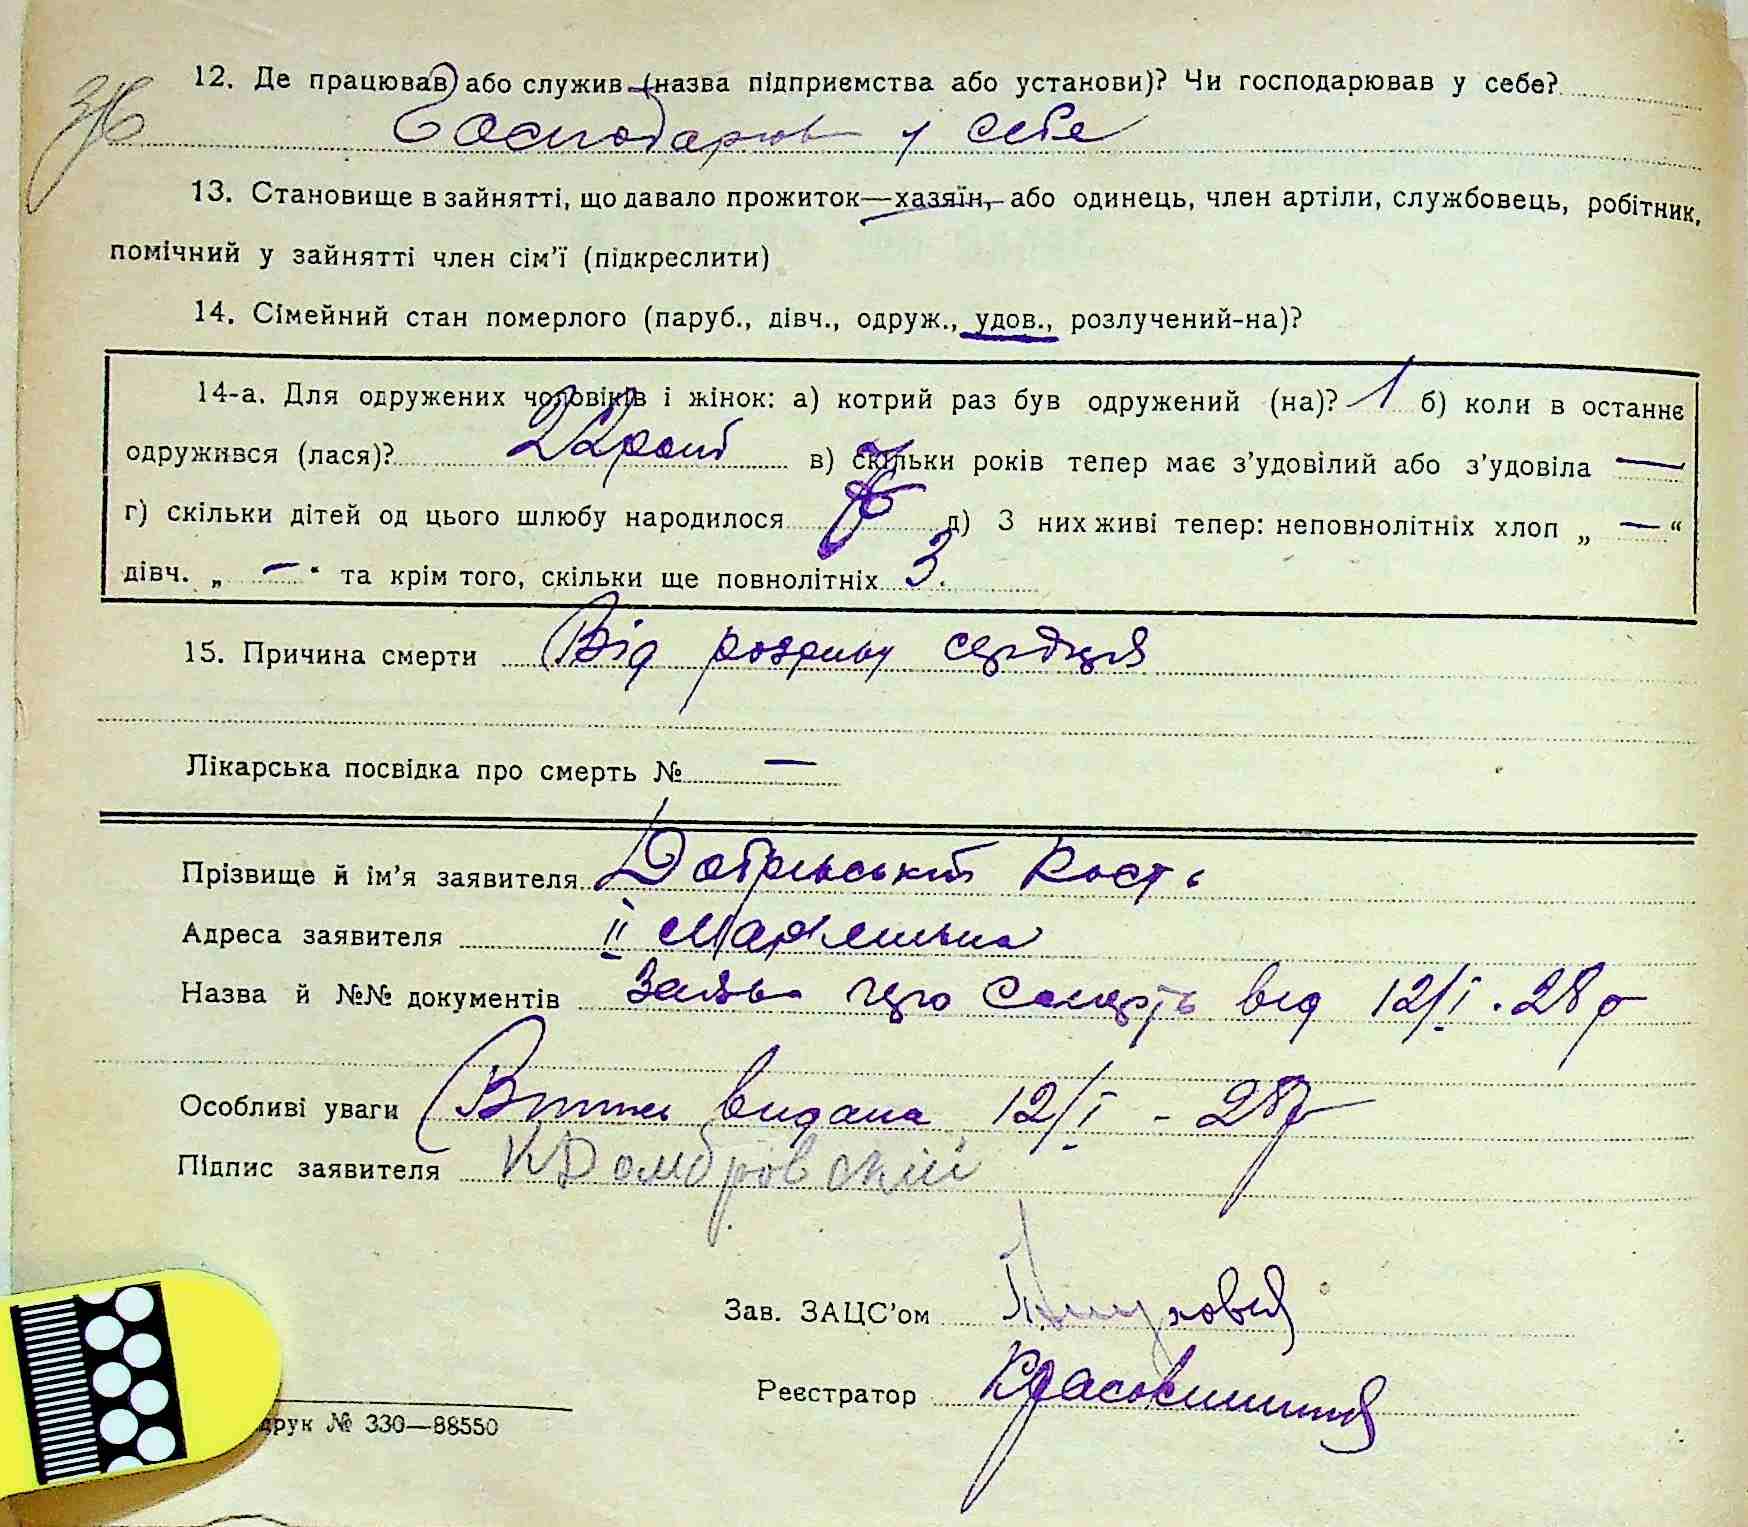 12. Де працював або служив (назва підприємства або установи)? Чи господарював у себе?
Господарюв у себе
13. Становище в зайнятті, що давало прожиток—хазяїн, або одинець, член артіли, службовець, робітник,
помічний у зайнятті член сім'ї (підкреслити)
14. Сімейний стан померлого (паруб., дівч., одруж., удов., розлучений-на)?
14-а. Для одружених чоловіків і жінок: а) котрий раз був одружений (на)? 1 б) коли в останнє
одружився (лася)? 22 в) скільки років тепер має з'удовілий або з'удовіла —
г) скільки дітей од цього шлюбу народилося д) З них живі тепер: неповнолітніх хлоп „ — “
дівч. „ — “ та крім того, скільки ще повнолітніх 3.
15. Причина смерти Від розриву сердця
Лікарська посвідка про смерть № —
Прізвище й ім'я заявителя Кость
Адреса заявителя II
Назва й №№ документів Заява про смерть від 12/I. 28 р
Особливі уваги видана 12/I - 28 р
Підпис заявителя КДомбровский
Зав. ЗАЦС'ом
Реєстратор
друк № 330—88550